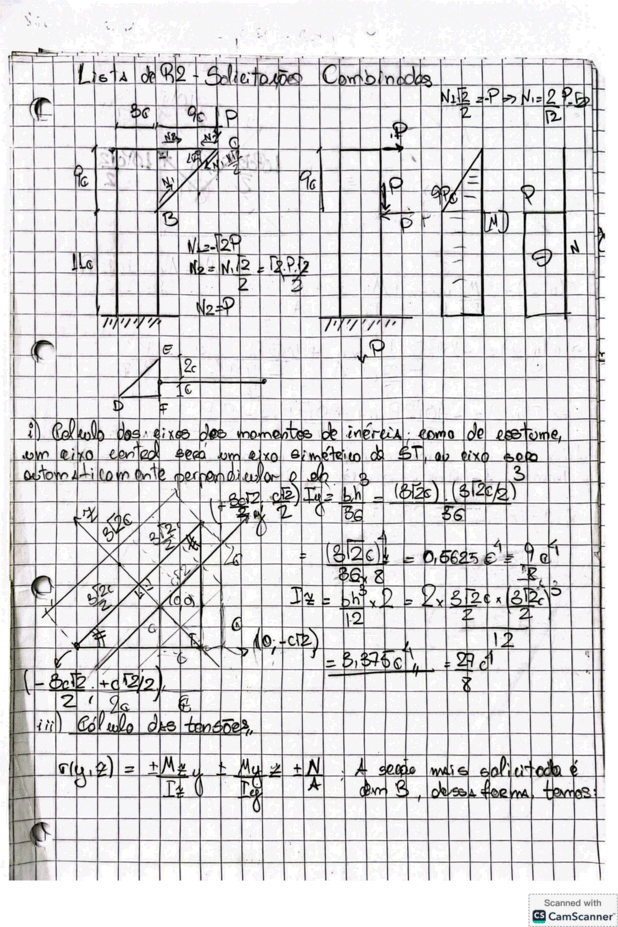 Lista de R2 - Solicitações Combinadas
N1√2/2 = -P => N1 = 2/√2 P.√2
3c 9c P
N2 N2 C
9c
N1
B
N1 = -√2P
N2 = N1√2/2 = √2.P.√2/2
N2 = P
12c
P
9c
P
P
9Pc
M
P
N
P
E
2c
1c
D F
i) Calculo dos eixos dos momentos de inércia: como de costume,
um eixo central será um eixo simétrico da ST, ou eixo será
automaticamente perpendicular a ele
Iy = bh³/36 = (3√2c).(3√2c/2)³/36
= (3√2c)⁴/36x8 = 0,5625 c⁴ = 9/8 c⁴
Iz = bh³/12 x 2 = 2 x 3√2c/2 x (3√2c/2)³/12
= 3,375c⁴ = 27/8 c⁴
z 3√2c 3√2c/2 y
3√2c/2 c√2 2c
c c
(0, -c√2)
(-3c√2/2, +c√2/2)
2c
iii) Cálculo das tensões,,
σ(y,z) = ±Mz/Iz y ± My/Iy z ± N/A : A seção mais solicitada é
em B, dessa forma, temos:
Scanned with
CS CamScanner